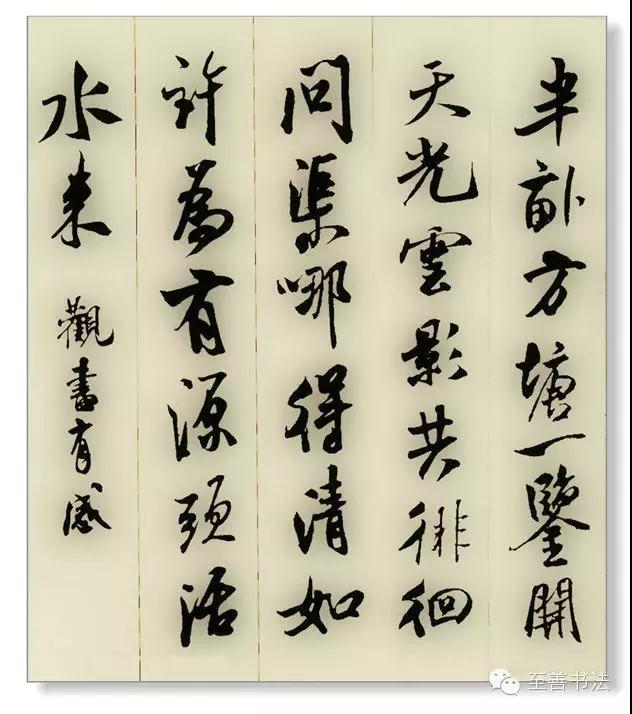 半畝方塘一鑒開
天光雲影共徘徊
問渠哪得清如
許為有源頭活
水來 觀書有感
至善书法